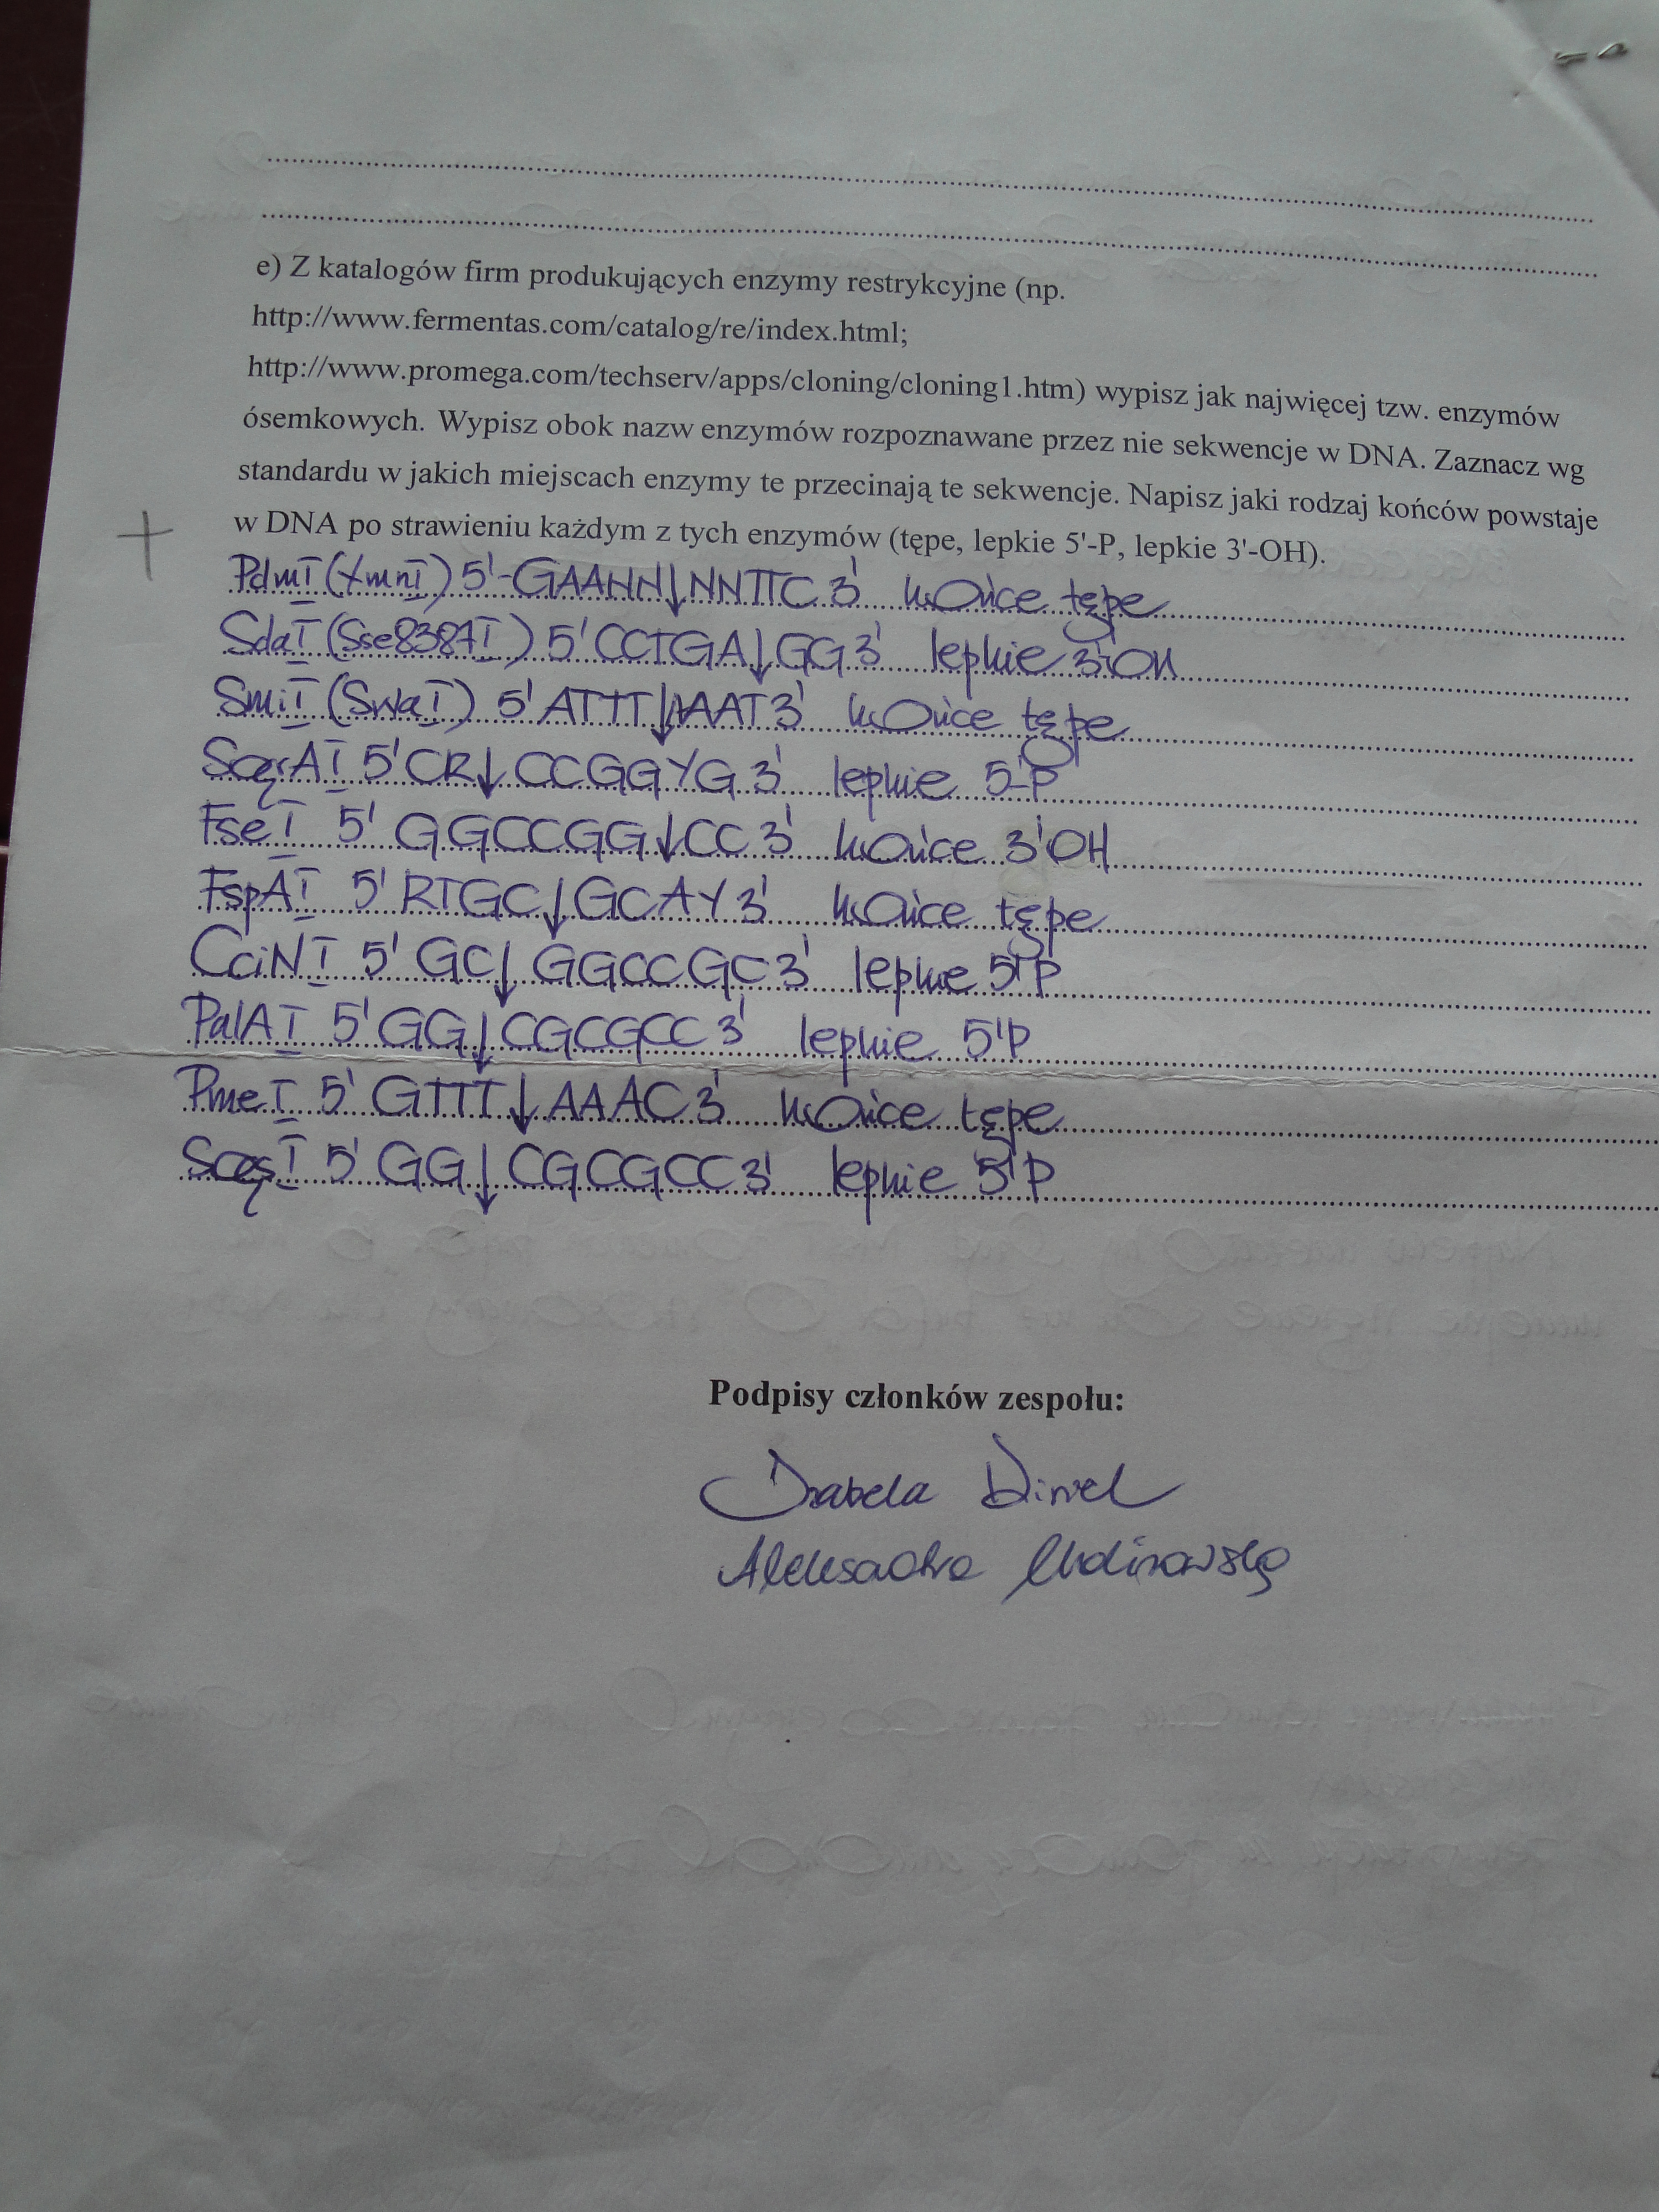 e) Z katalogów firm produkujących enzymy restrykcyjne (np.
http://www.fermentas.com/catalog/re/index.html;
http://www.promega.com/techserv/apps/cloning/cloning1.htm) wypisz jak najwięcej tzw. enzymów
ósemkowych. Wypisz obok nazw enzymów rozpoznawane przez nie sekwencje w DNA. Zaznacz wg
standardu w jakich miejscach enzymy te przecinają te sekwencje. Napisz jaki rodzaj końców powstaje
w DNA po strawieniu każdym z tych enzymów (tępe, lepkie 5'-P, lepkie 3'-OH).
+
PdmI (XmnI) 5'-GAANN↓NNTTC 3' końce tępe
SdaI (Sse8387I) 5' CCTGA↓GG 3' lepkie 3'OH
SmiI (SwaI) 5' ATTT↓AAAT 3' końce tępe
SgrAI 5' CR↓CCGGYG 3' lepkie 5'-P
FseI 5' GGCCGG↓CC 3' końce 3'OH
FspAI 5' RTGC↓GCAY 3' końce tępe
CciNI 5' GC↓GGCCGC 3' lepkie 5'P
PalAI 5' GG↓CGCGCC 3' lepkie 5'P
PmeI 5' GTTT↓AAAC 3' końce tępe
SgsI 5' GG↓CGCGCC 3' lepkie 5'P
Podpisy członków zespołu:
Izabela
Aleksandra